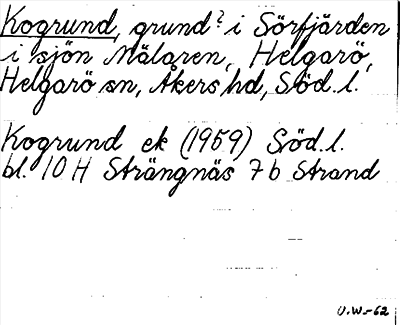 Kogrund, grund? i Sörfjärden
i sjön Mälaren, Helgarö,
Helgarö sn, Åkers hd, Söd. l.
Kogrund ek (1959) Söd. l.
bl. 10 H Strängnäs 7 b Strand
U.W.-62